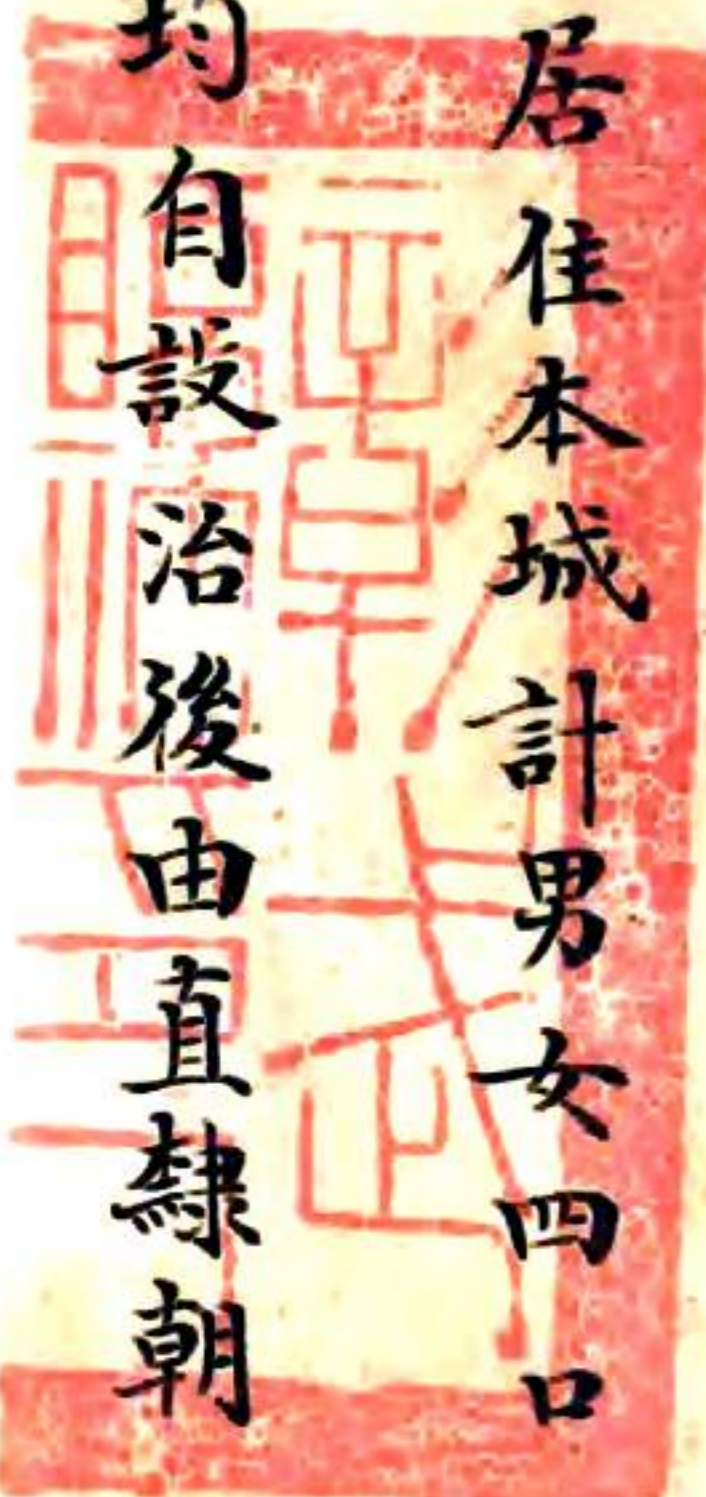 居住本城計男女四口
均自設治後由直隸朝